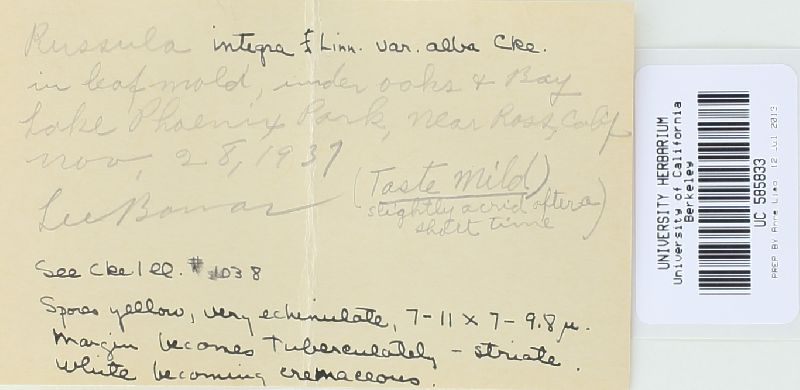 Russula integra f Linn. var. alba Cke.
in leaf mold, under oaks & Bay
Lake Phoenix Park, near Ross, Calif
Nov, 28, 1937
(Taste Mild)
slightly acrid after a
short time)
Lee Bonar
See Cke Ill. # 1038
Spores yellow, very echinulate, 7-11 x 7-9.8 µ.
Margin becomes Tuberculately - striate.
White becoming cremaceous.
UNIVERSITY HERBARIUM
University of California
Berkeley
UC 585833
PREP BY Anna Liao 12 Jul 2013